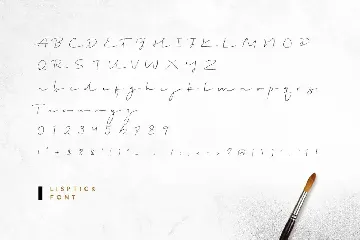 A B C D E F G H I J K L M N O P
Q R S T U V W X Y Z
a b c d e f g h i j k l m n o p q r s
T u v w x y z
0 1 2 3 4 5 6 7 8 9
LISPTICK
FONT